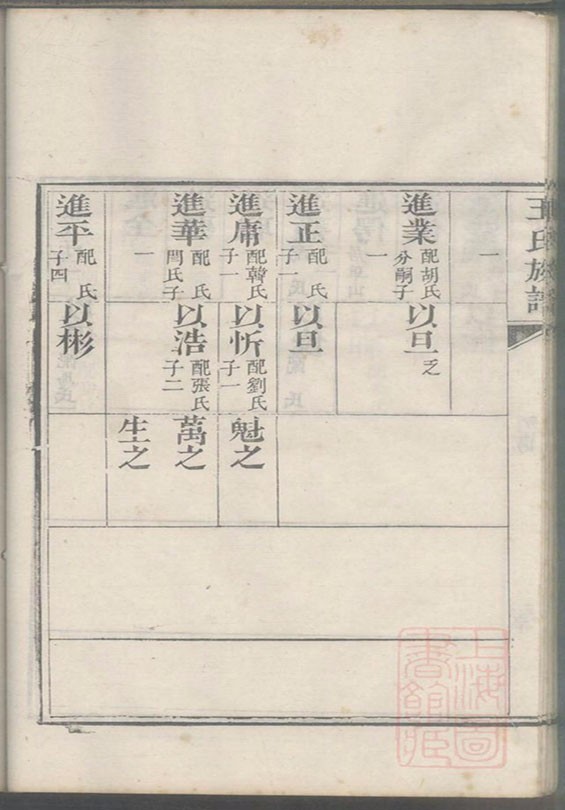 王氏族譜
一
進業 配胡氏 分嗣子
一
以旦 乏
進正 配 氏 子一
以旦
進庸 配韓氏 子一
以忻 配劉氏 子一
魁之
進華 配 氏 門氏子
一
以浩 配張氏 子二
萬之
生之
進平 配 氏 子四
以彬
上海圖書館藏